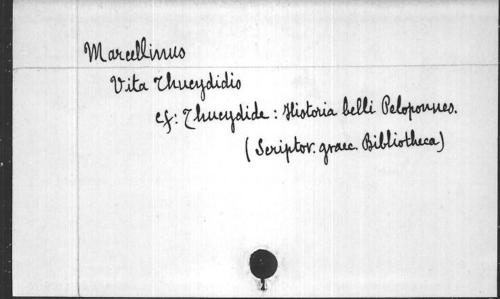 Marcellinus
Vita Thucydidis
cf: Thucydide: Historia belli Peloponnes.
(Scriptor. graec. Bibliotheca)